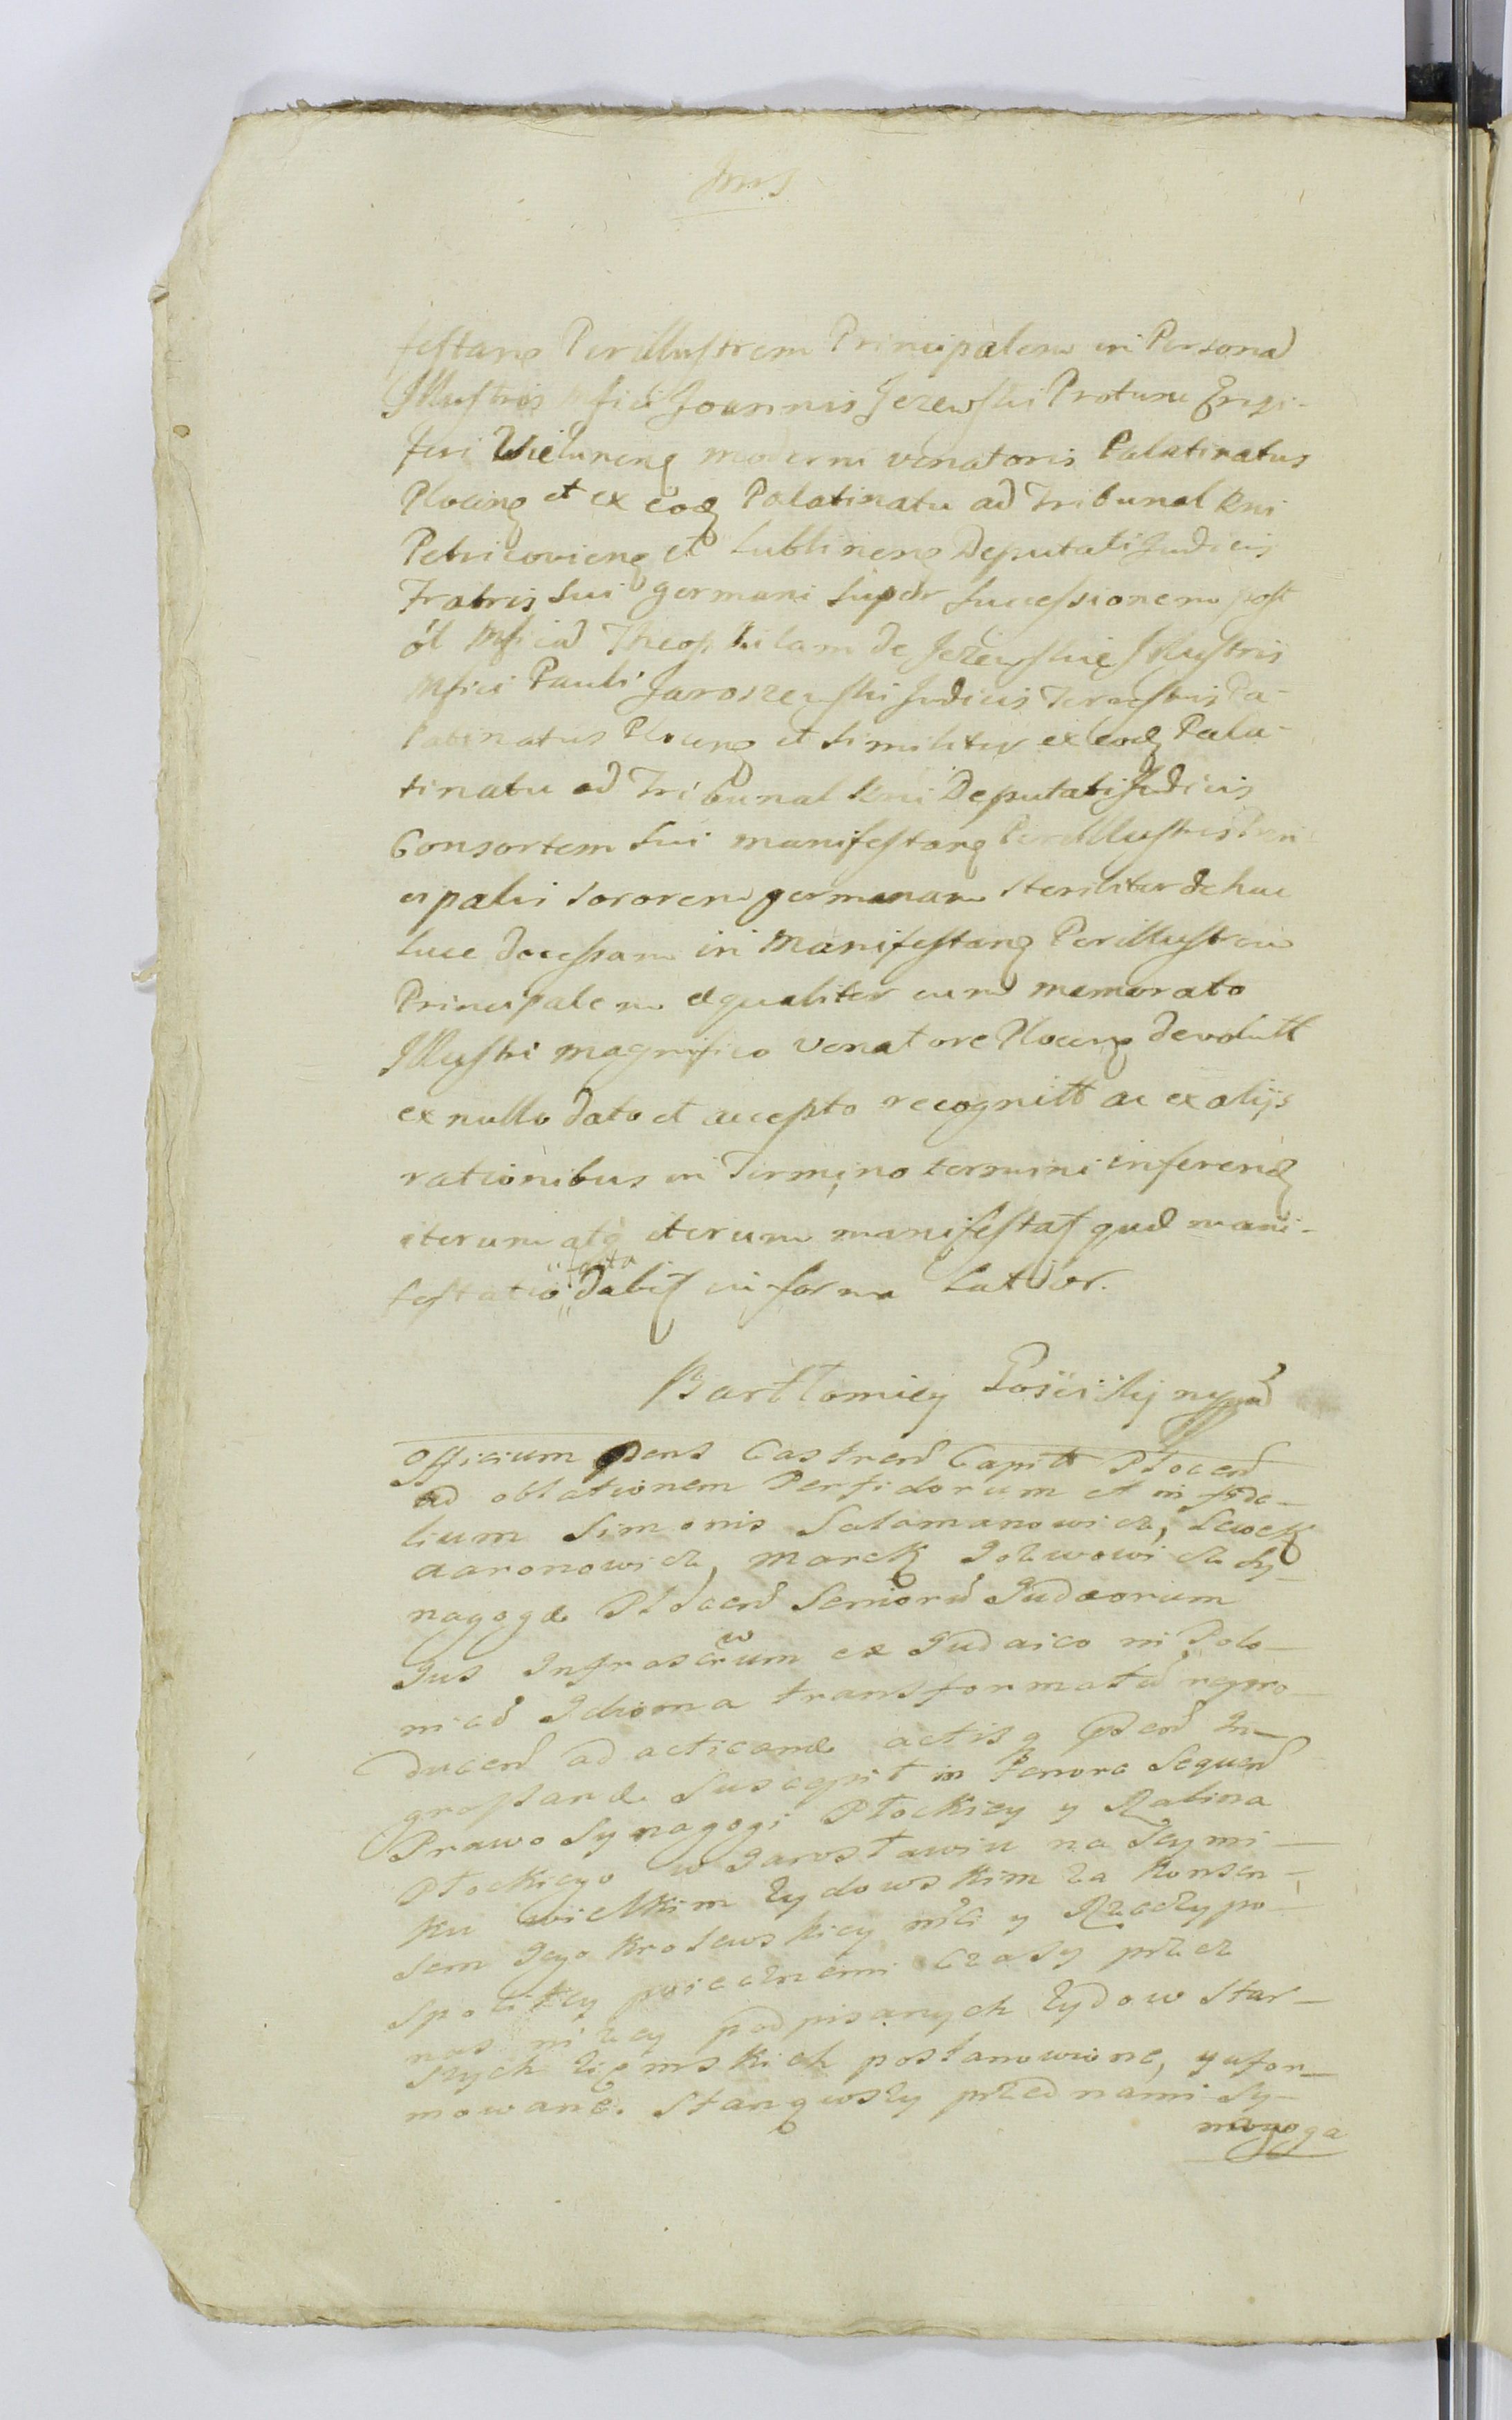 festans Perillustrem Principalem in Persona
Illustris Mfici Joannis Jezewski Protunc Ensi-
feri Wieluneng moderni venatoris Palatinatus
Ploceng et ex eodg Palatinatu ad Tribunal Rni
Petricovieng et Lublineng Deputati Judicis
Fratris sui germani super successionem post
ol Mficad Theophilam de Jezewskie Illustris
Mfici Pauli Jaroszewski Judicis Terrestris Pa-
latinatus Ploceng et similiter ex eodg Pala-
tinatu ad Tribunal Rni Deputati Judicis
Consortem sui manifestang Perillustris Prin
cipalis sororem germanam steriliter de hac
luce decessam in Manifestang Perillustrem
Principalem aequaliter cum memorato
Illustri magnifico venatore Ploceng devolutt
ex nullo dato et accepto recognitt ac ex alijs
rationibus in Termino termini inferendg
iterum atq iterum manifestat qud mani-
festatio facta dabit in forma Latior.
Bartłomiey Gościcki mpp
Officium pens Castren Capitt Płocen
ad oblationem Perfidorum et infide-
lium Simonis Salamonowicz, Lewek
Aaronowicz, Marek Jozwowicz Sy-
nagogæ Płocen Seniorū Judæorum
Jus Infrascrum ex Judaico in Polo-
nicū Idioma transformatū repro-
ducen ad acticand actisq pden In-
grossand suscepit in tenore sequen
Prawo Synagogi Płockiey y Rabina
Płockiego w Jarosławiu na Seymi-
ku wielkim Żydowskim za konsen-
sem Jego Krolewskiey mći y Rzeczypo-
spolitey wiecznemi czasy przez
nas niżey podpisanych Żydow star-
szych Ziemskich postanowione, y ufor-
mowane. Stanąwszy przed nami Sy-
nagoga